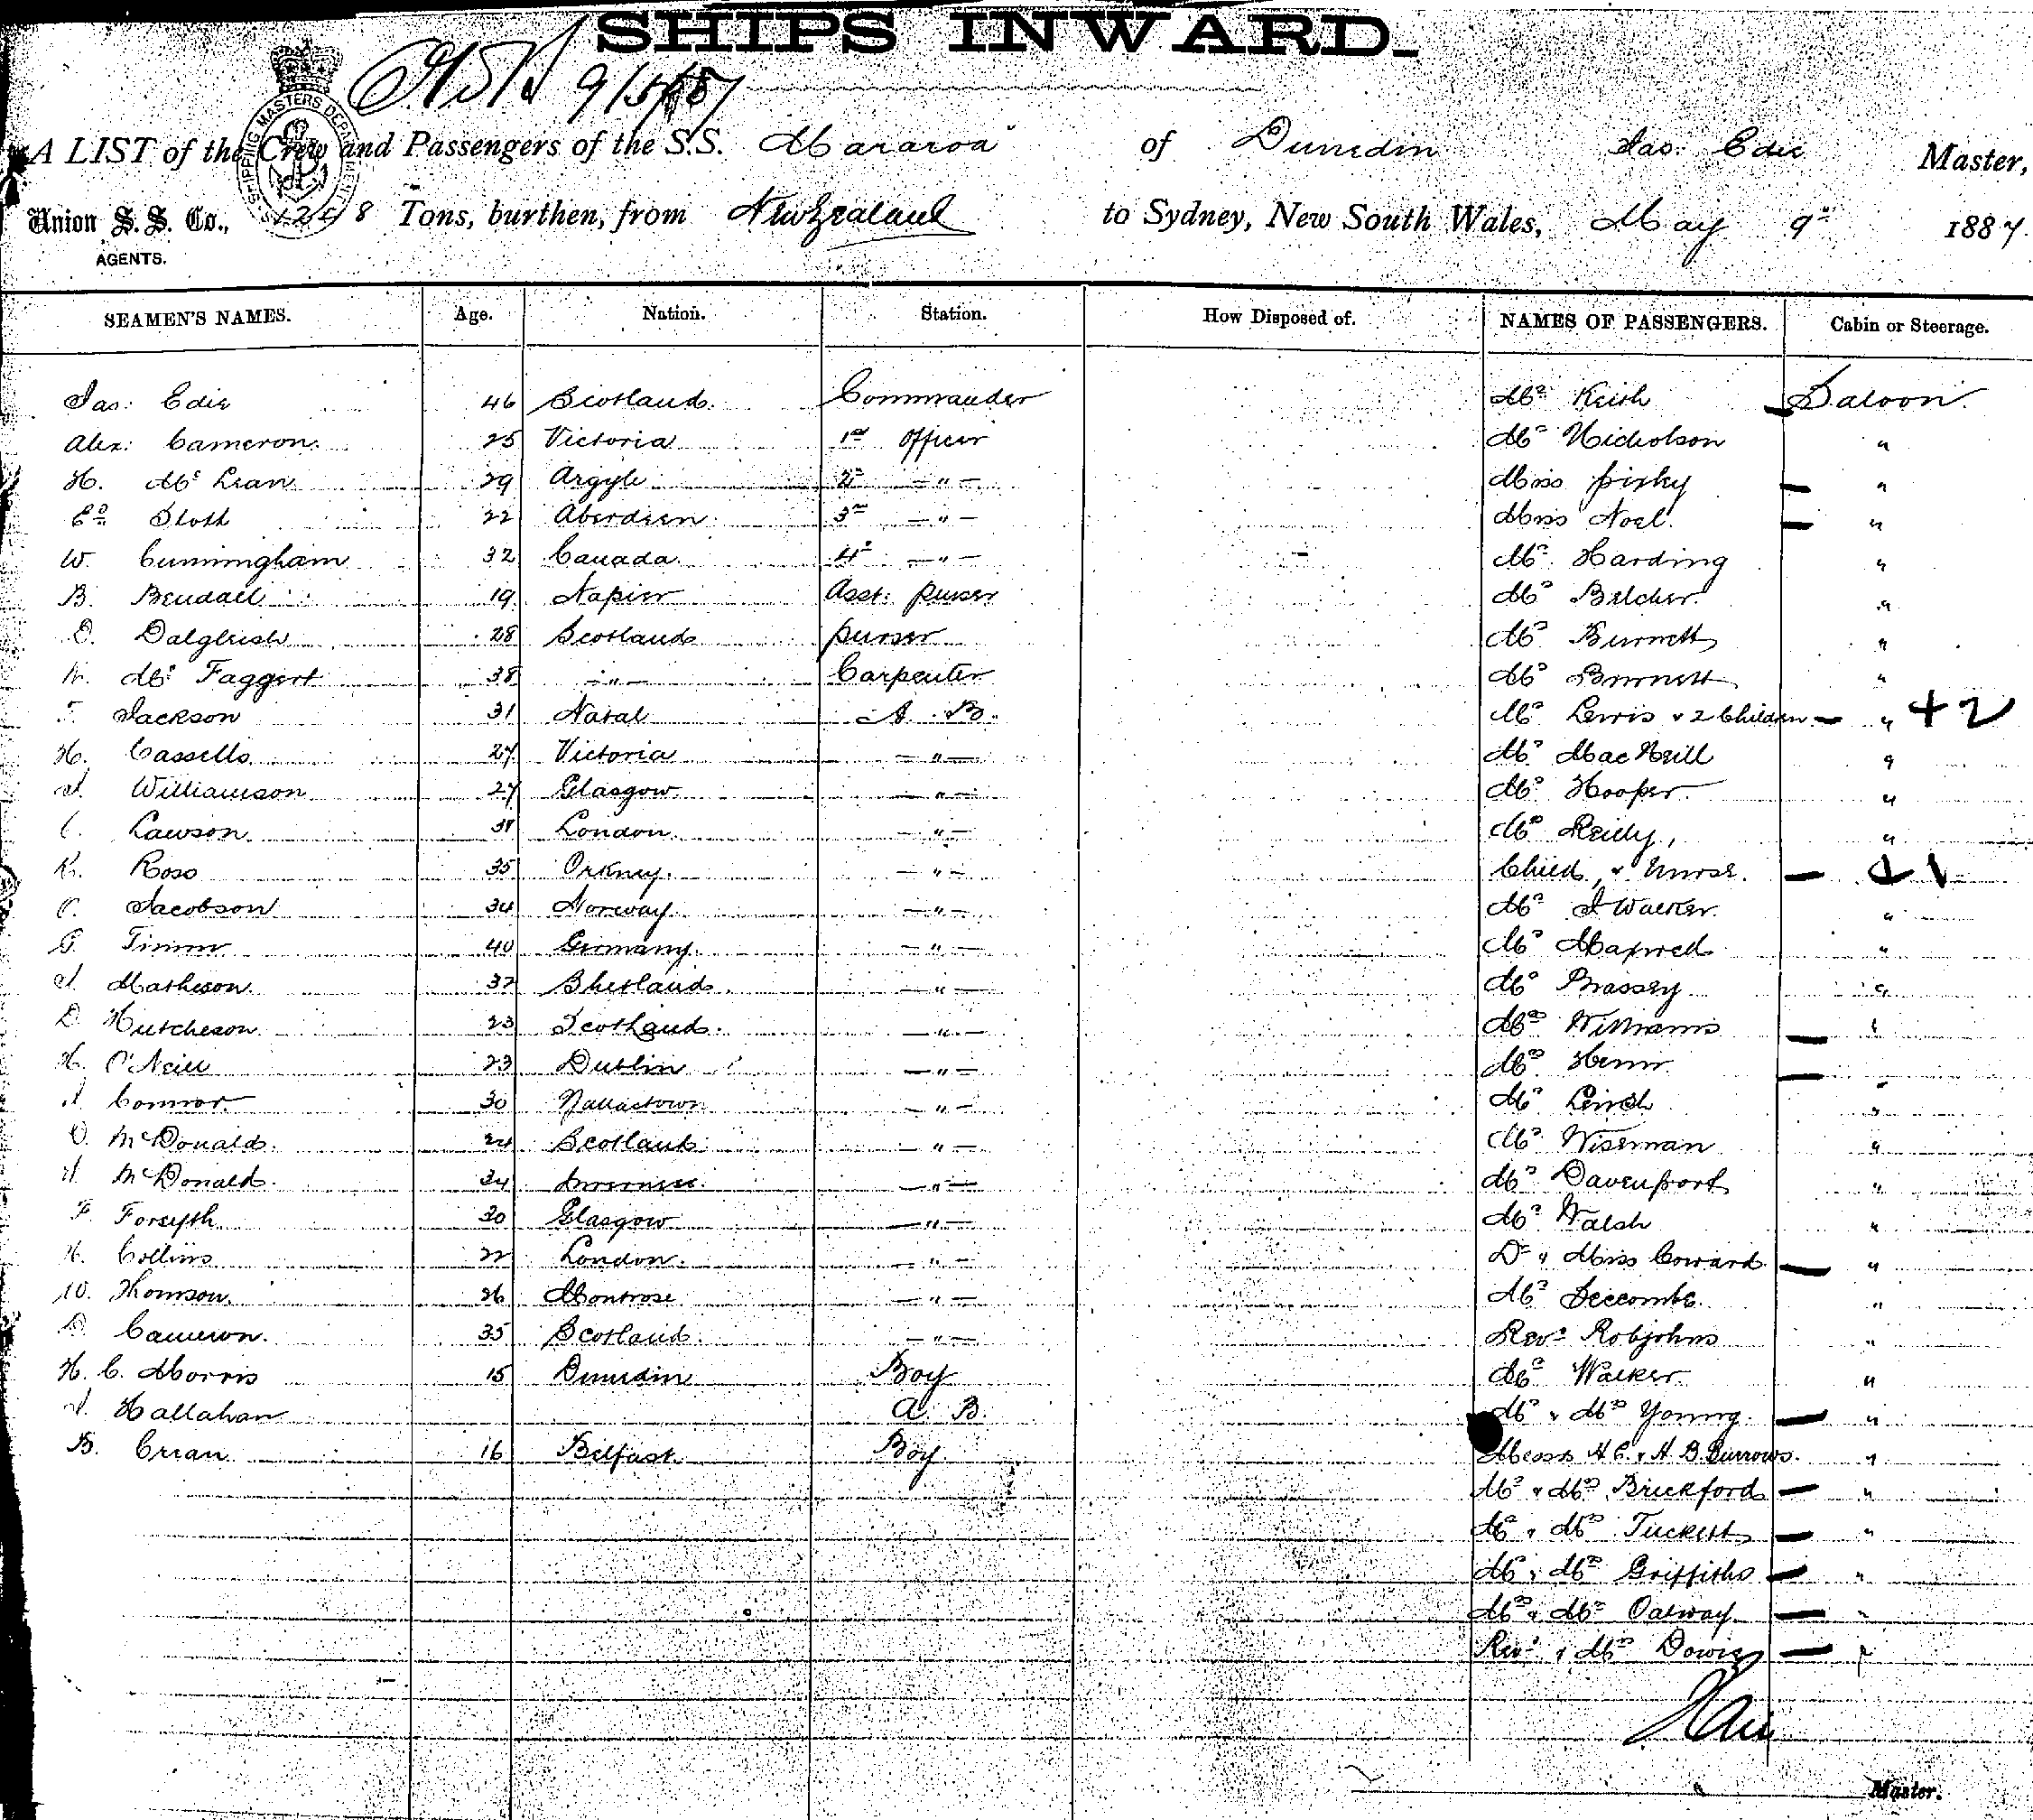 SHIPS INWARD.
9/5/87
SHIPPING MASTERS DEPARTMENT
A LIST of the Crew and Passengers of the S.S. Mararoa of Dunedin Jas: Edie Master,
Union S. S. Co., 1248 Tons, burthen, from New Zealand to Sydney, New South Wales, May 9th 1887
AGENTS.
SEAMEN'S NAMES. Age. Nation. Station. How Disposed of. NAMES OF PASSENGERS. Cabin or Steerage.
Jas: Edie 46 Scotland Commander Mr Keith Saloon
Alex: Cameron 25 Victoria 1st Officer Mr Nicholson "
H. Mc Lean 29 Argyle 2nd -"- Miss "
Ed Stott 22 Aberdeen 3rd -"- Miss Noel "
W. Cunningham 32 Canada 4th -"- Mr Harding "
B. Bendall 19 Napier Asst: purser Mr Belcher "
D. Dalgleish 28 Scotland purser Mr Burnett "
Mc Taggert 38 -"- Carpenter Mr Burnett "
Jackson 31 Natal A. B. Lewis & 2 Children " + 2
H. Cassells 27 Victoria -"- Mr MacNeill "
Williamson 27 Glasgow -"- Mr Hooper "
Lawson London -"- Reilly, "
Ross 35 Orkney -"- Child, & Nurse.
Jacobson 34 Norway -"- Mr J Walker "
G. Timm 40 Germany -"- Mr Maxwell "
Matheson 32 Shetland -"- Mr Brassey "
D. Hutcheson 23 Scotland -"- Mrs Williams "
H. O'Neill 23 Dublin -"- Mrs
Connor 30 -"- Mr "
McDonald 24 Scotland -"- Mr Wiseman "
McDonald 34 Inverness -"- Mr Davenport "
F. Forsyth 30 Glasgow -"- Mr Walsh "
H. Collins 22 London -"- Dr & Miss Coward "
W. Thomson 26 Montrose -"- Mr Seccombe "
D. Cameron. 35 Scotland -"- Revd Robjohns "
H. C. Morris 15 Dunedin Boy Mr Walker "
J. Hallahan A. B. Mr & Mrs Young "
B. Crean 16 Belfast Boy Messrs H C. & H B. Burrows. "
Mr & Mrs Brickford "
Mr & Mrs Tuckett "
Mr & Mrs Griffiths "
Oatway "
Revd & Mrs Dowie "
Master.